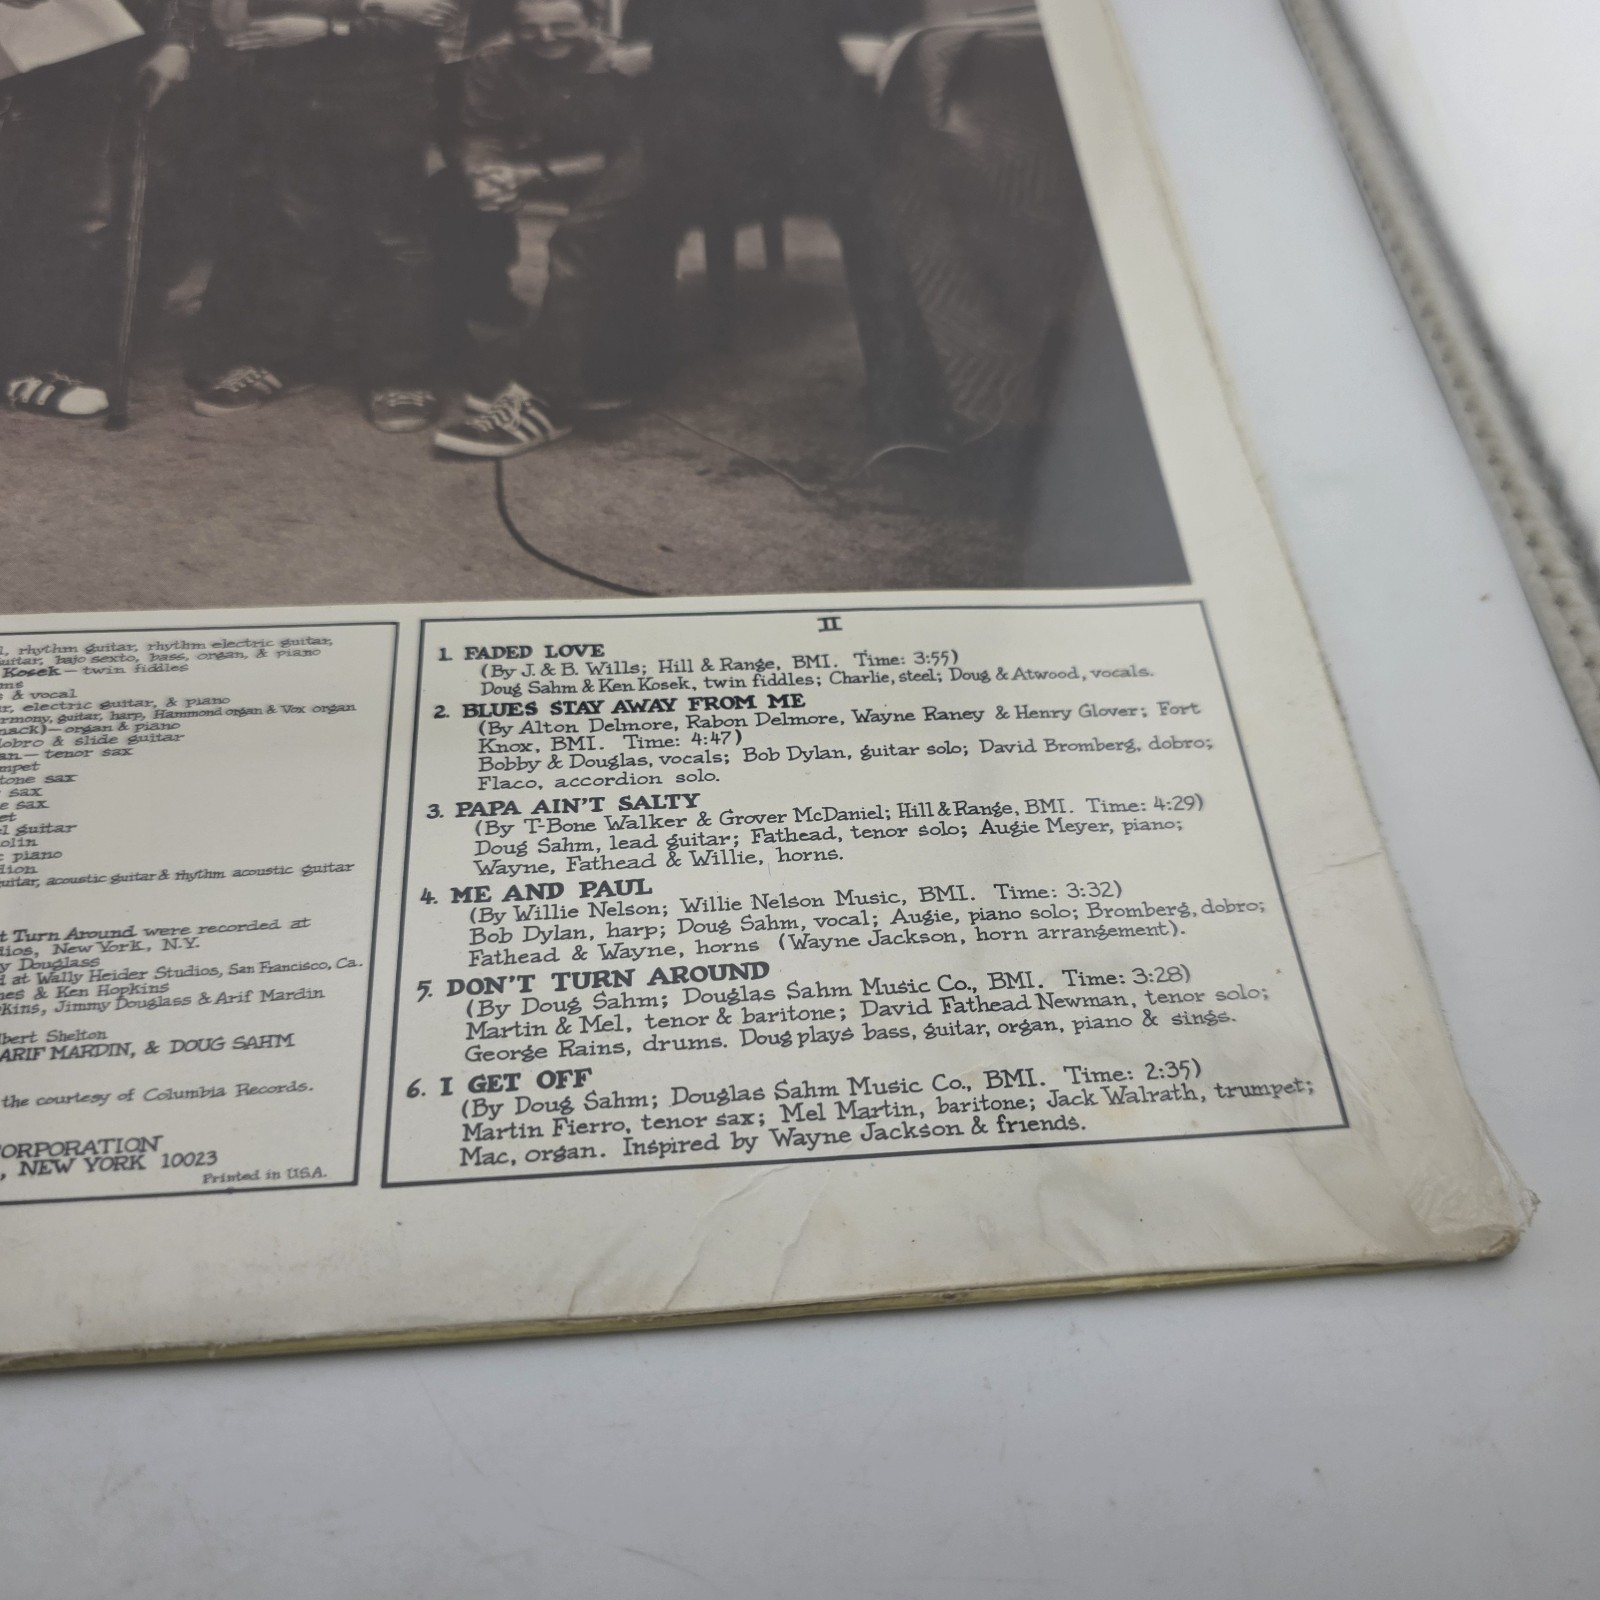 rhythm guitar, rhythm electric guitar,
bajo sexto, bass, organ, & piano
Kosek — twin fiddles
& vocal
electric guitar, & piano
guitar, harp, Hammond organ & Vox organ
— organ & piano
& slide guitar
— tenor sax
sax
sax
sax
guitar
piano
acoustic guitar & rhythm acoustic guitar
Turn Around were recorded at
New York, N.Y.
Douglass
at Wally Heider Studios, San Francisco, Ca.
& Ken Hopkins
Jimmy Douglass & Arif Mardin
Shelton
ARIF MARDIN, & DOUG SAHM
the courtesy of Columbia Records.
NEW YORK 10023
Printed in U.S.A.
II
1. FADED LOVE
(By J. & B. Wills; Hill & Range, BMI. Time: 3:55)
Doug Sahm & Ken Kosek, twin fiddles; Charlie, steel; Doug & Atwood, vocals.
2. BLUES STAY AWAY FROM ME
(By Alton Delmore, Rabon Delmore, Wayne Raney & Henry Glover; Fort
Knox, BMI. Time: 4:47)
Bobby & Douglas, vocals; Bob Dylan, guitar solo; David Bromberg, dobro;
Flaco, accordion solo.
3. PAPA AIN'T SALTY
(By T-Bone Walker & Grover McDaniel; Hill & Range, BMI. Time: 4:29)
Doug Sahm, lead guitar; Fathead, tenor solo; Augie Meyer, piano;
Wayne, Fathead & Willie, horns.
4. ME AND PAUL
(By Willie Nelson; Willie Nelson Music, BMI. Time: 3:32)
Bob Dylan, harp; Doug Sahm, vocal; Augie, piano solo; Bromberg, dobro;
Fathead & Wayne, horns (Wayne Jackson, horn arrangement).
5. DON'T TURN AROUND
(By Doug Sahm; Douglas Sahm Music Co., BMI. Time: 3:28)
Martin & Mel, tenor & baritone; David Fathead Newman, tenor solo;
George Rains, drums. Doug plays bass, guitar, organ, piano & sings.
6. I GET OFF
(By Doug Sahm; Douglas Sahm Music Co., BMI. Time: 2:35)
Martin Fierro, tenor sax; Mel Martin, baritone; Jack Walrath, trumpet;
Mac, organ. Inspired by Wayne Jackson & friends.